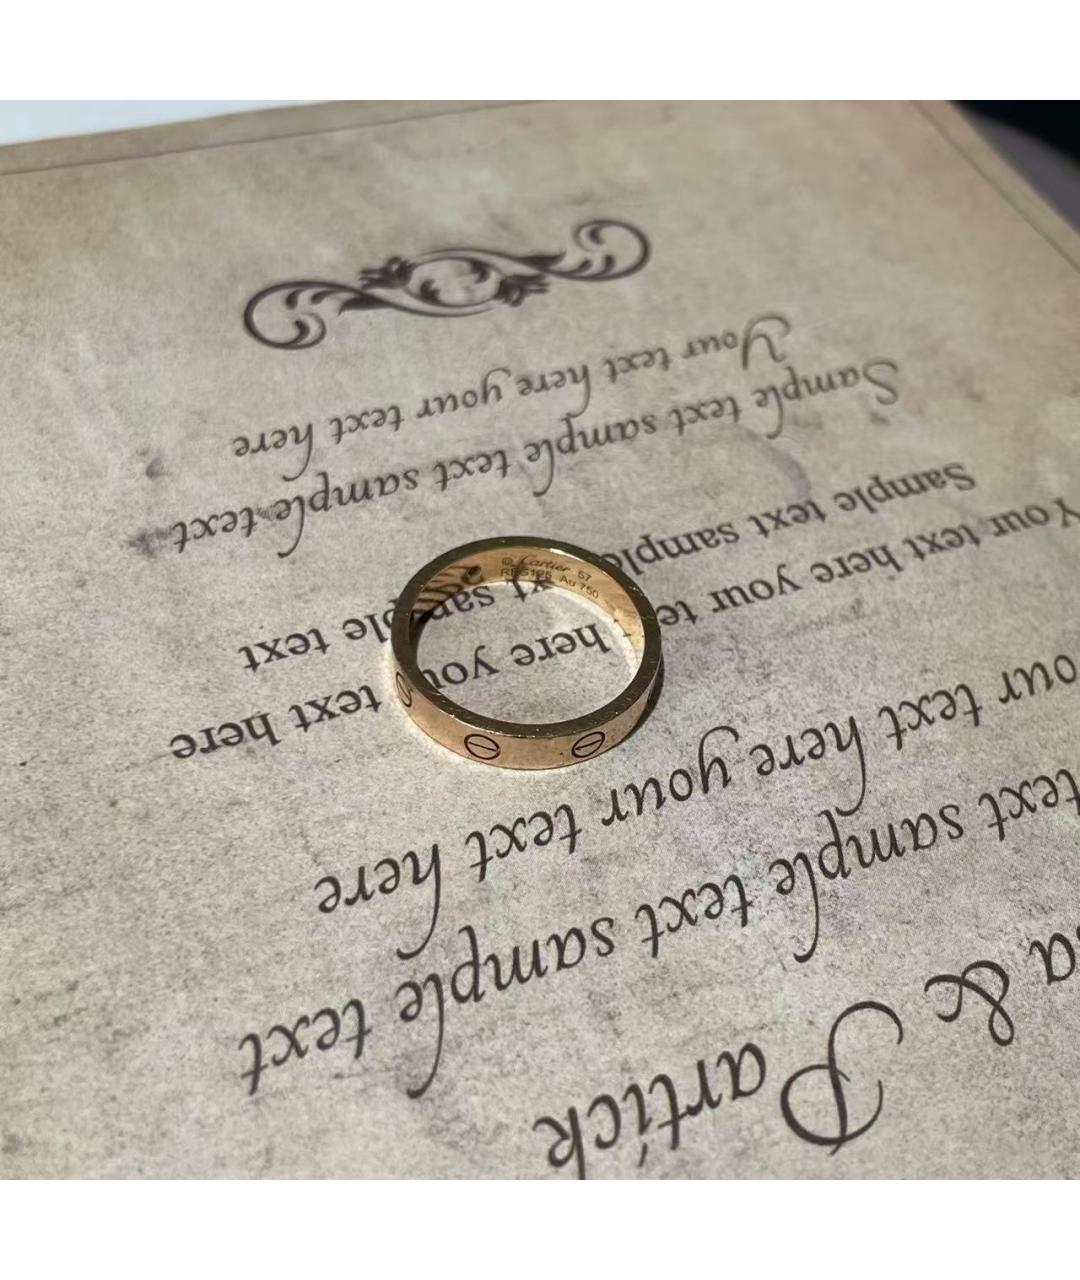 a & Partick
text sample text sample text
our text here your text here
Your text here your te here you text here
Sample text sample text sample text
Sample text sample text sample text
Your text here your text here
© Cartier 57
Au 750